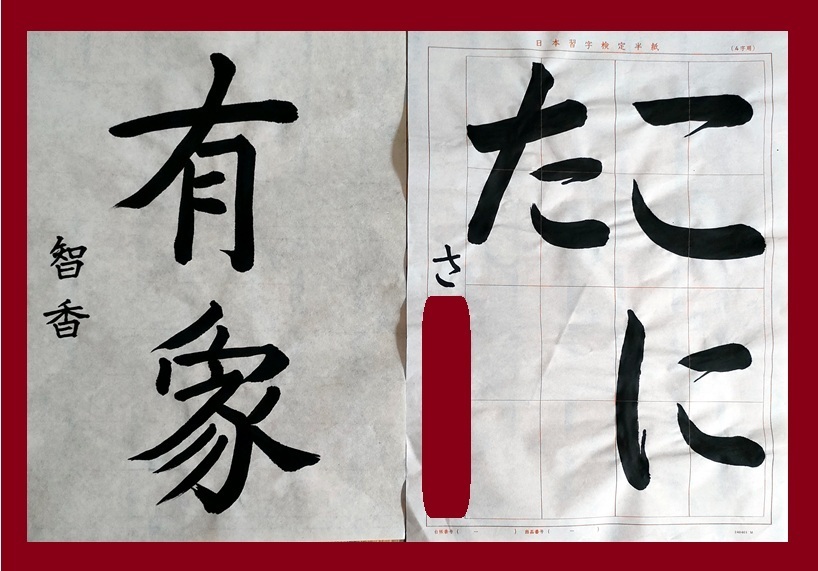 日本習字検定半紙
(4字用)
こに
た
さ
有象
智香